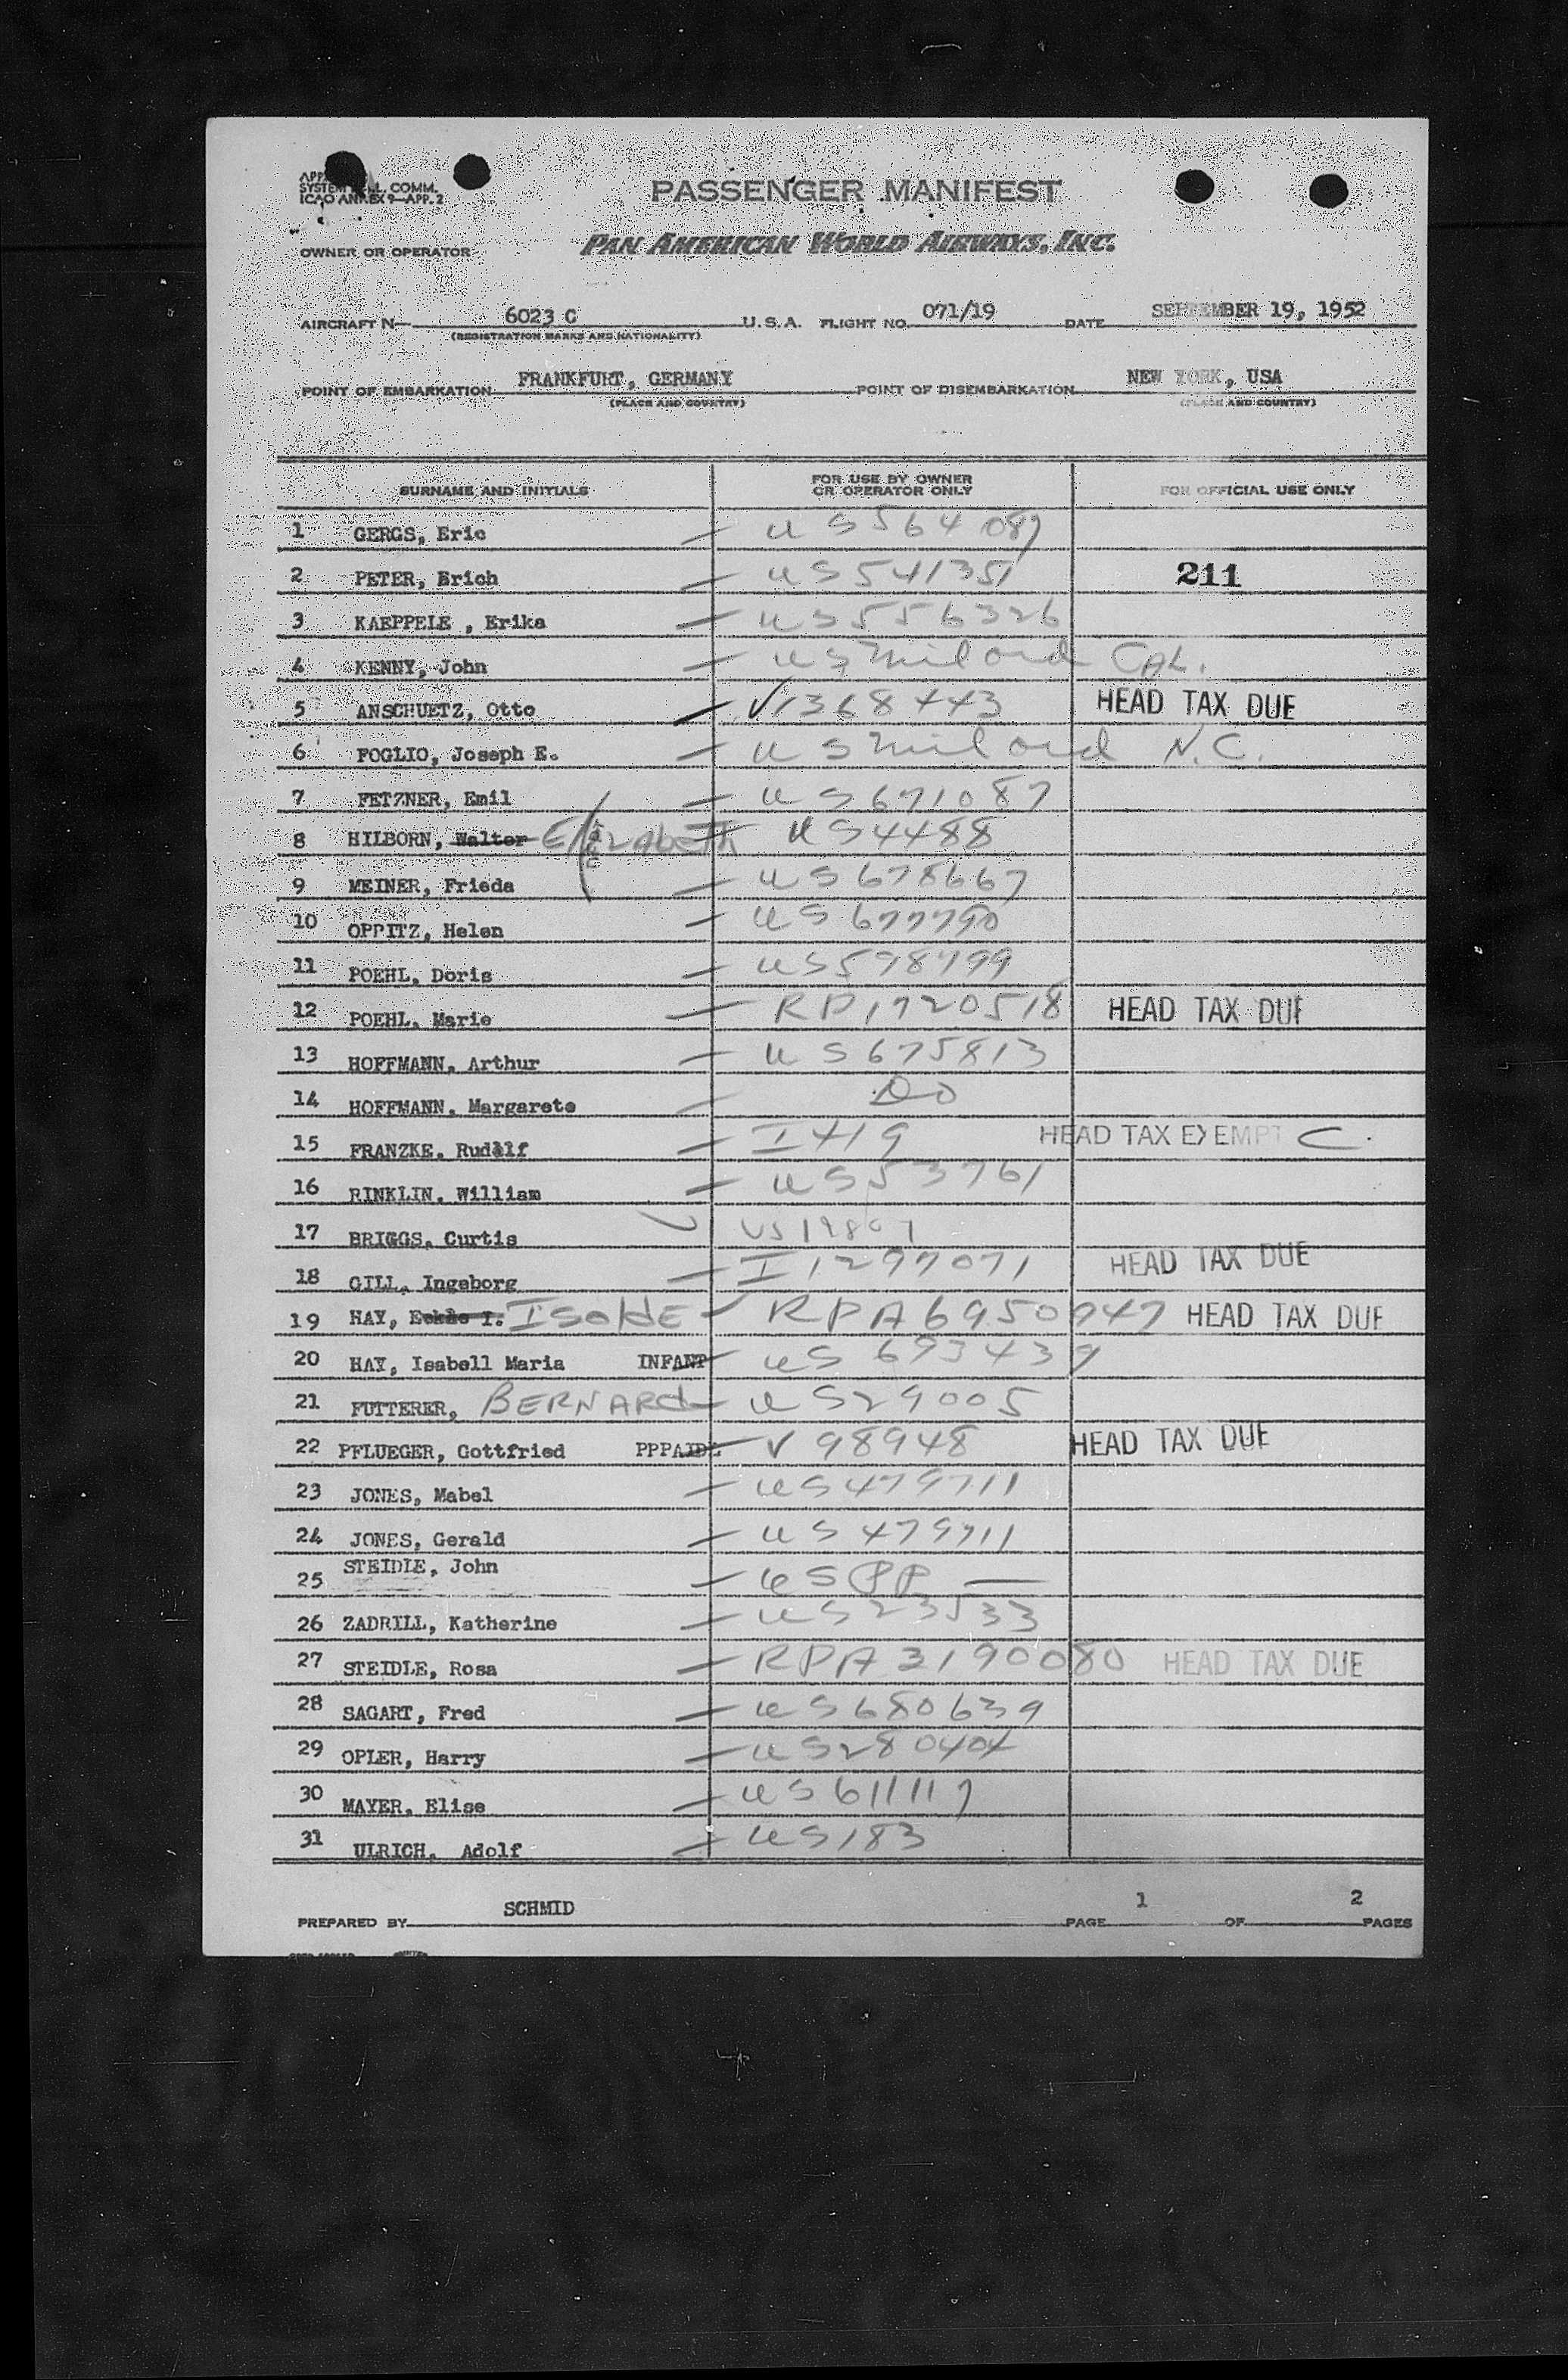 SYSTEM COMM.
ICAO ANNEX 9—APP. 2
PASSENGER MANIFEST
OWNER OR OPERATOR
PAN AMERICAN WORLD AIRWAYS, INC.
AIRCRAFT N— 6023 C U.S.A. FLIGHT NO. 071/19 DATE SEPTEMBER 19, 1952
(REGISTRATION MARKS AND NATIONALITY)
POINT OF EMBARKATION FRANKFURT, GERMANY POINT OF DISEMBARKATION NEW YORK, USA
(PLACE AND COUNTRY) (PLACE AND COUNTRY)
SURNAME AND INITIALS FOR USE BY OWNER OR OPERATOR ONLY FOR OFFICIAL USE ONLY
1 GERGS, Eric — US 564087
2 PETER, Erich — US 541351 211
3 KAEPPELE , Erika — US 556326
4 KENNY, John — US Mil ord CAL.
5 ANSCHUETZ, Otto — V1368443 HEAD TAX DUE
6 FOGLIO, Joseph E. — US Mil ord N.C.
7 FETZNER, Emil — US 671087
8 HILBORN, Walter ElizABETH US 4488
9 MEINER, Frieda — US 678667
10 OPPITZ, Helen — US 677790
11 POEHL, Doris — US 598799
12 POEHL, Marie — RP 1720518 HEAD TAX DUE
13 HOFFMANN, Arthur — US 675813
14 HOFFMANN, Margarete — Do
15 FRANZKE, Rudolf — I 419 HEAD TAX EXEMPT C.
16 RINKLIN, William — US 53761
17 BRIGGS, Curtis US 19807
18 GILL, Ingeborg — I 1297071 HEAD TAX DUE
19 HAY, ISOLDE — RPA 6950947 HEAD TAX DUE
20 HAY, Isabell Maria INFANT — US 693439
21 FUTTERER, BERNARd — US 29005
22 PFLUEGER, Gottfried — V 98948 HEAD TAX DUE
23 JONES, Mabel — US 479711
24 JONES, Gerald — US 479711
25 STEIDLE, John — US PP —
26 ZADRILL, Katherine — US 23533
27 STEIDLE, Rosa — RPA 3190080 HEAD TAX DUE
28 SAGART, Fred — US 680639
29 OPLER, Harry — US 280404
30 MAYER, Elise — US 611117
31 ULRICH, Adolf — US 183
PREPARED BY SCHMID PAGE 1 OF 2 PAGES